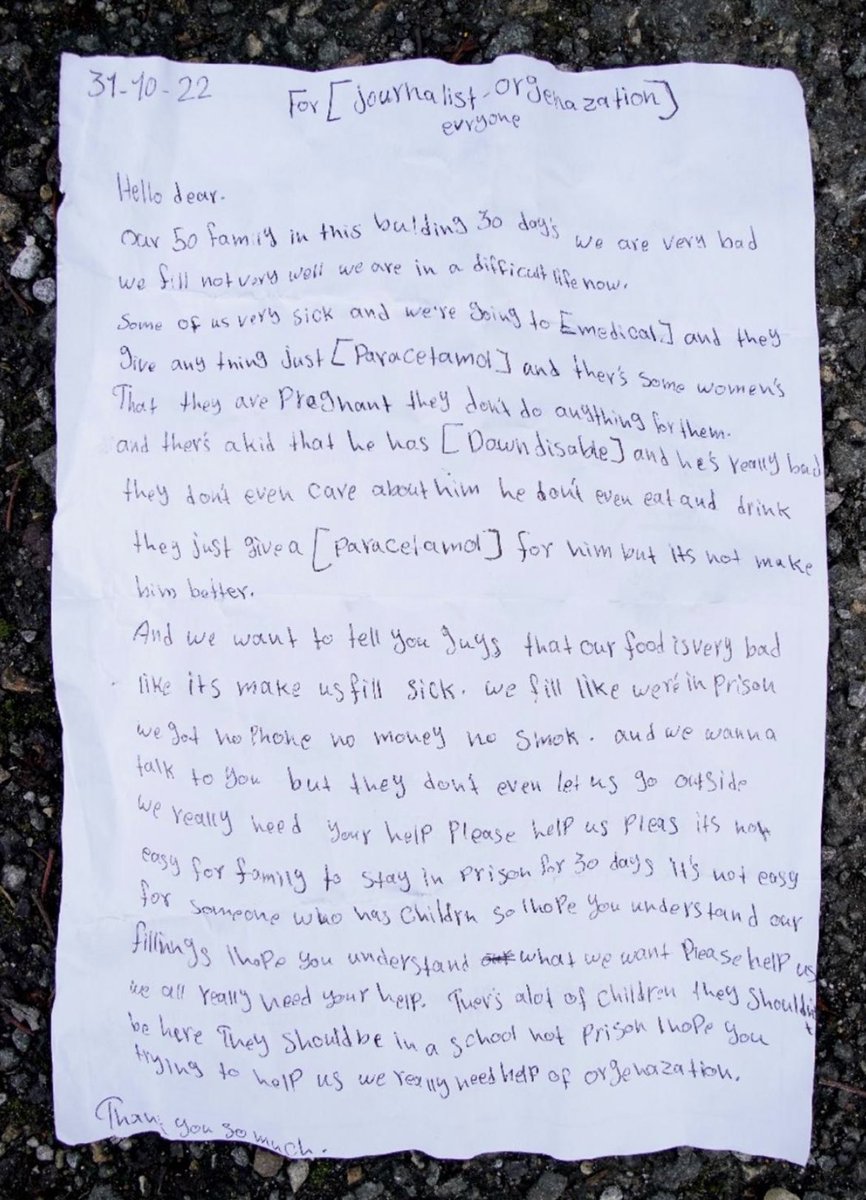 31-10-22
For [journalist - orgenazation]
evryone
Hello dear.
Our 50 family in this bulding 30 day's we are very bad
we fill not very well we are in a difficult life now.
Some of us very sick and we're going to [medical] and they
give any thing just [Paracetamol] and ther's some women's
That they are Pregnant they don't do anything for them.
and ther's a kid that he has [Down disable] and he's really bad
they don't even care about him he don't even eat and drink
they just give a [paracetamol] for him but its not make
him better.
And we want to tell you guys that our food is very bad
like its make us fill sick. we fill like were in prison
we got no Phone no money no smok. and we wanna
talk to you but they don't even let us go outside
we really need your help Please help us Pleas its not
easy for family to stay in prison for 30 days it's not easy
for someone who has childrn so I hope you understand our
fillings I hope you understand what we want Please help us
we all really need your help. Ther's alot of children they Shouldn't
be here They Should be in a school not Prison I hope you
trying to help us we really need help of orgenazation.
Thank you so much.